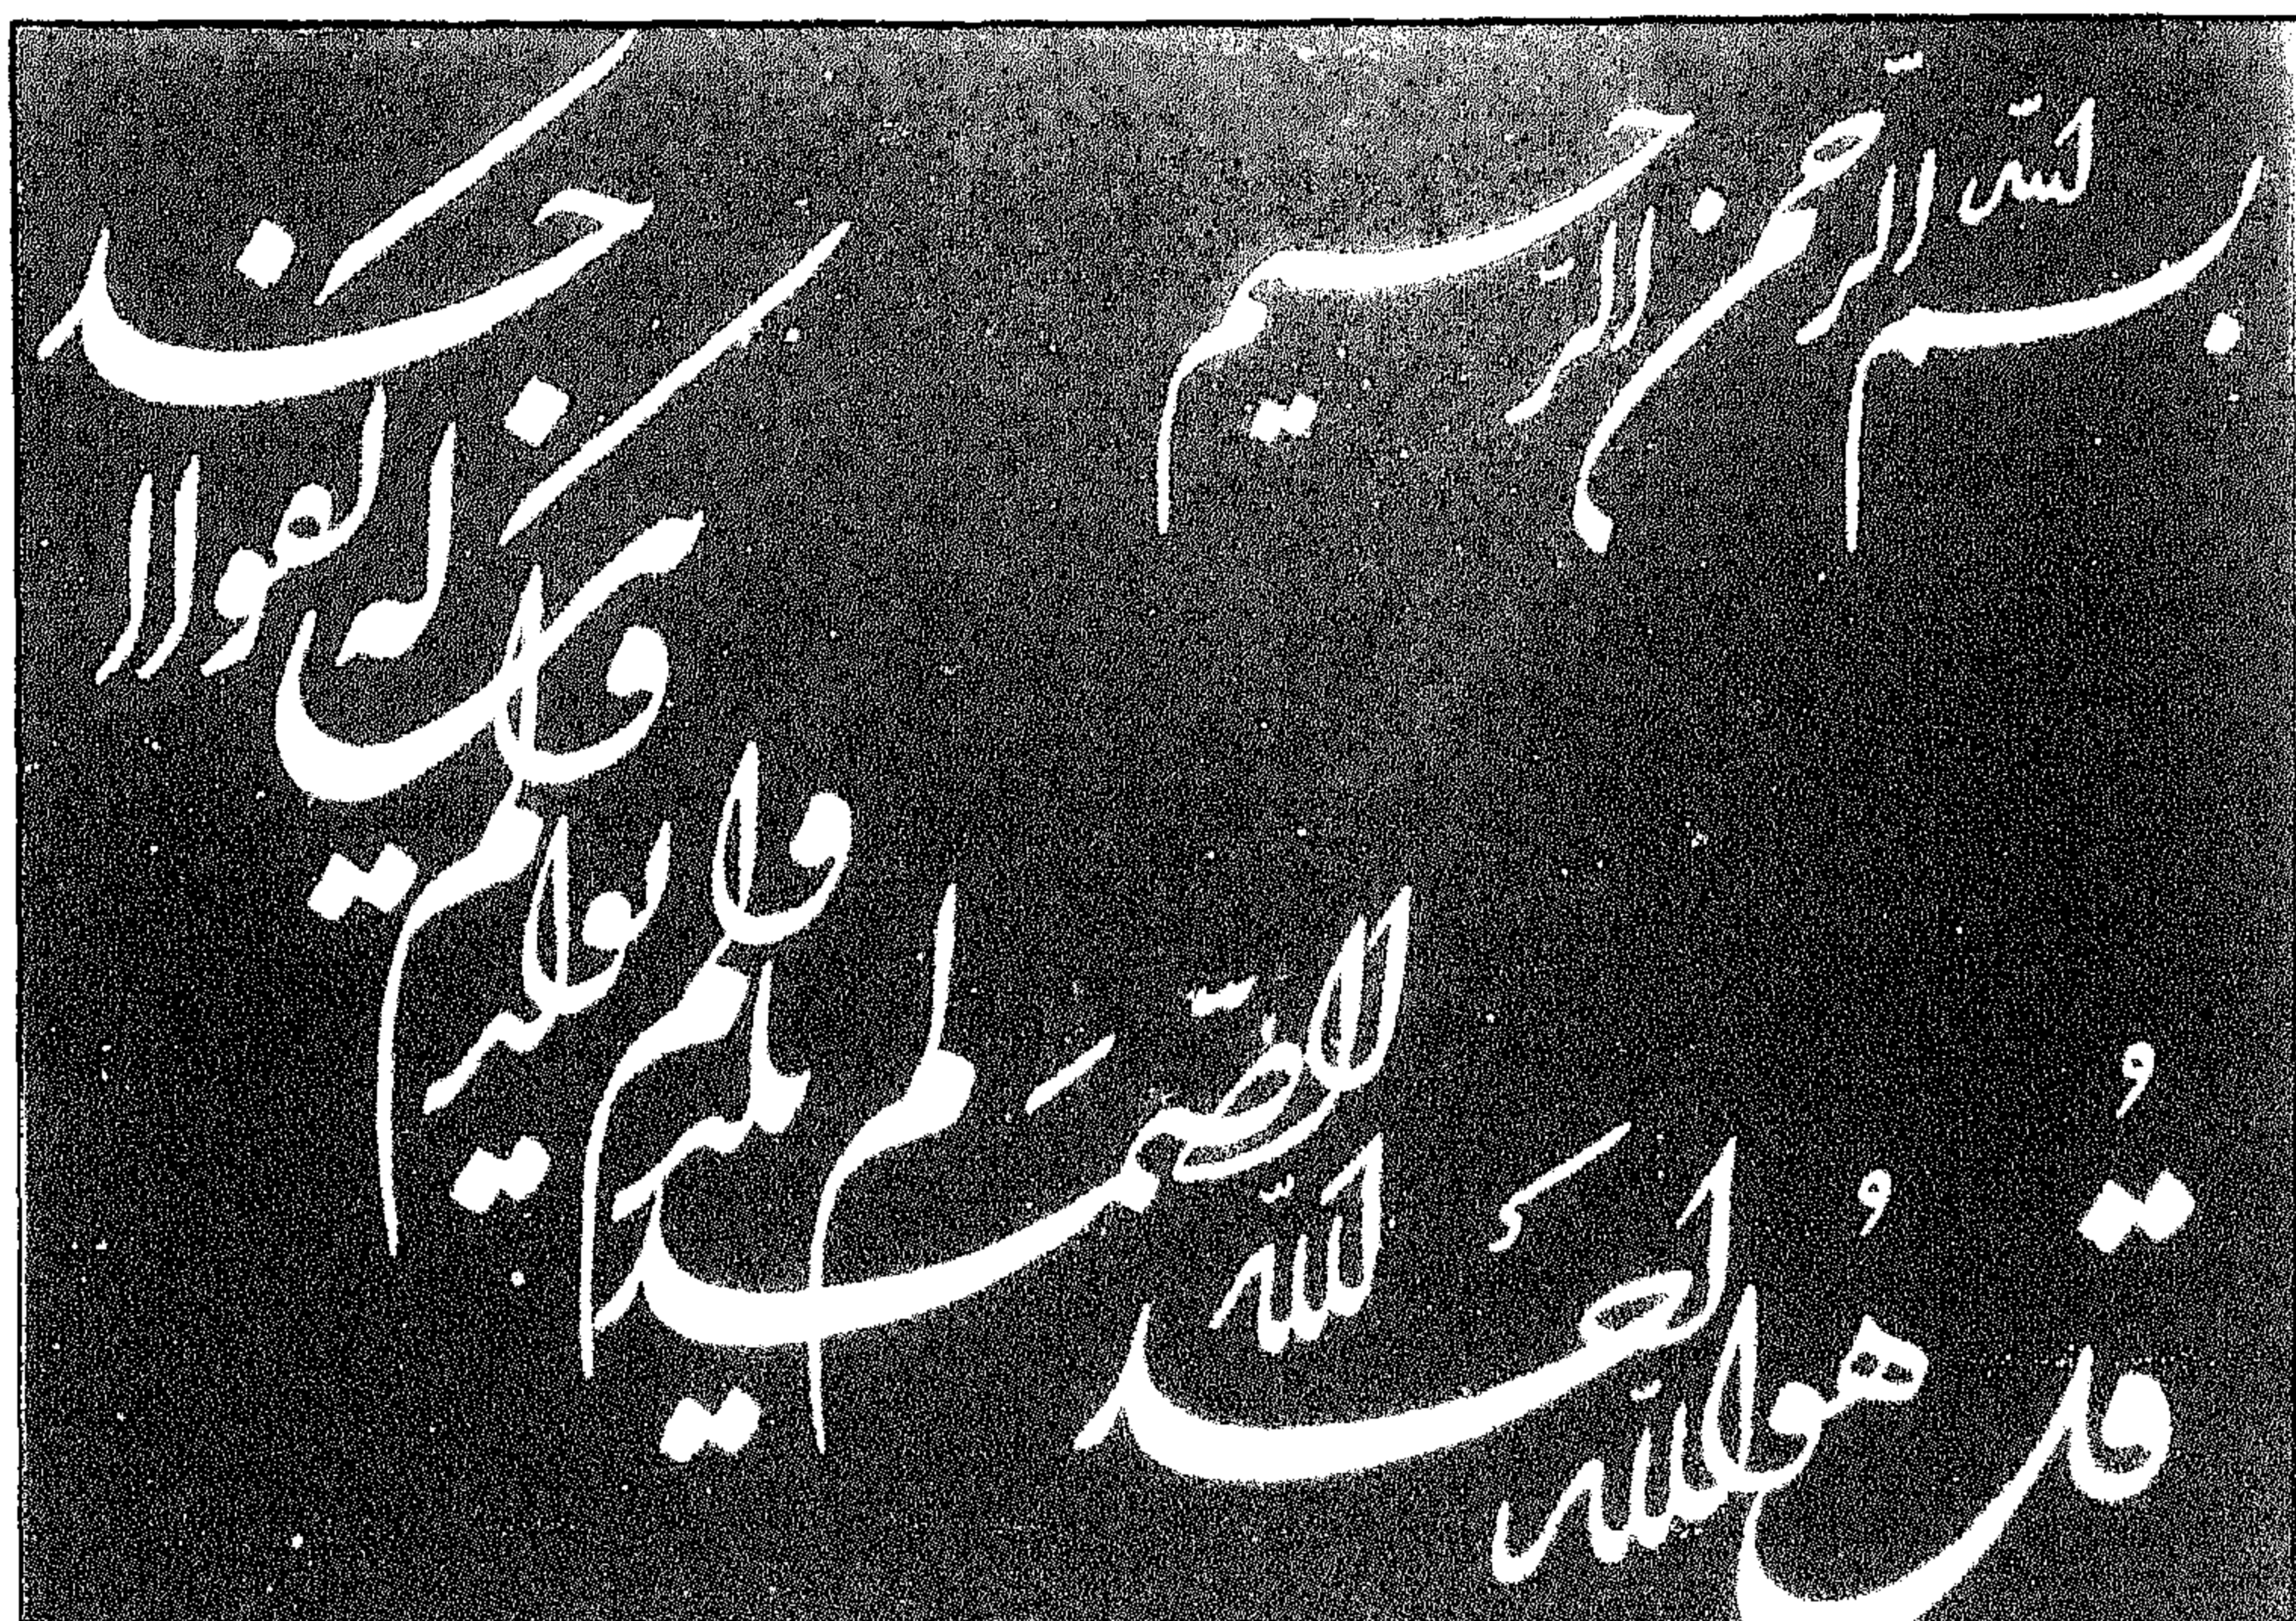 بسم الله الرّحمن الرّحيم
قُل هُو الله احد
الله الصّمد
لم يلد
و لم يولد
و لم يكن له كفوا احد